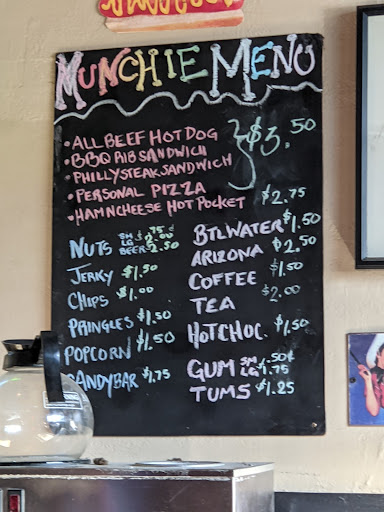 MUNCHIE MENU
• ALL BEEF HOT DOG
• BBQ RIB SANDWICH
• PHILLY STEAK SANDWICH
$3.50
• PERSONAL PIZZA
• HAM N CHEESE HOT POCKET $2.75
NUTS SM .75¢
LG $2.00
BEER 2.50
JERKY $1.50
CHIPS $1.00
PRINGLES $1.50
POPCORN $1.50
CANDYBAR $1.75
BTLWATER $1.50
ARIZONA $2.50
COFFEE $1.50
TEA $2.00
HOTCHOC. $1.50
GUM SM .50¢
LG $1.75
TUMS $1.25